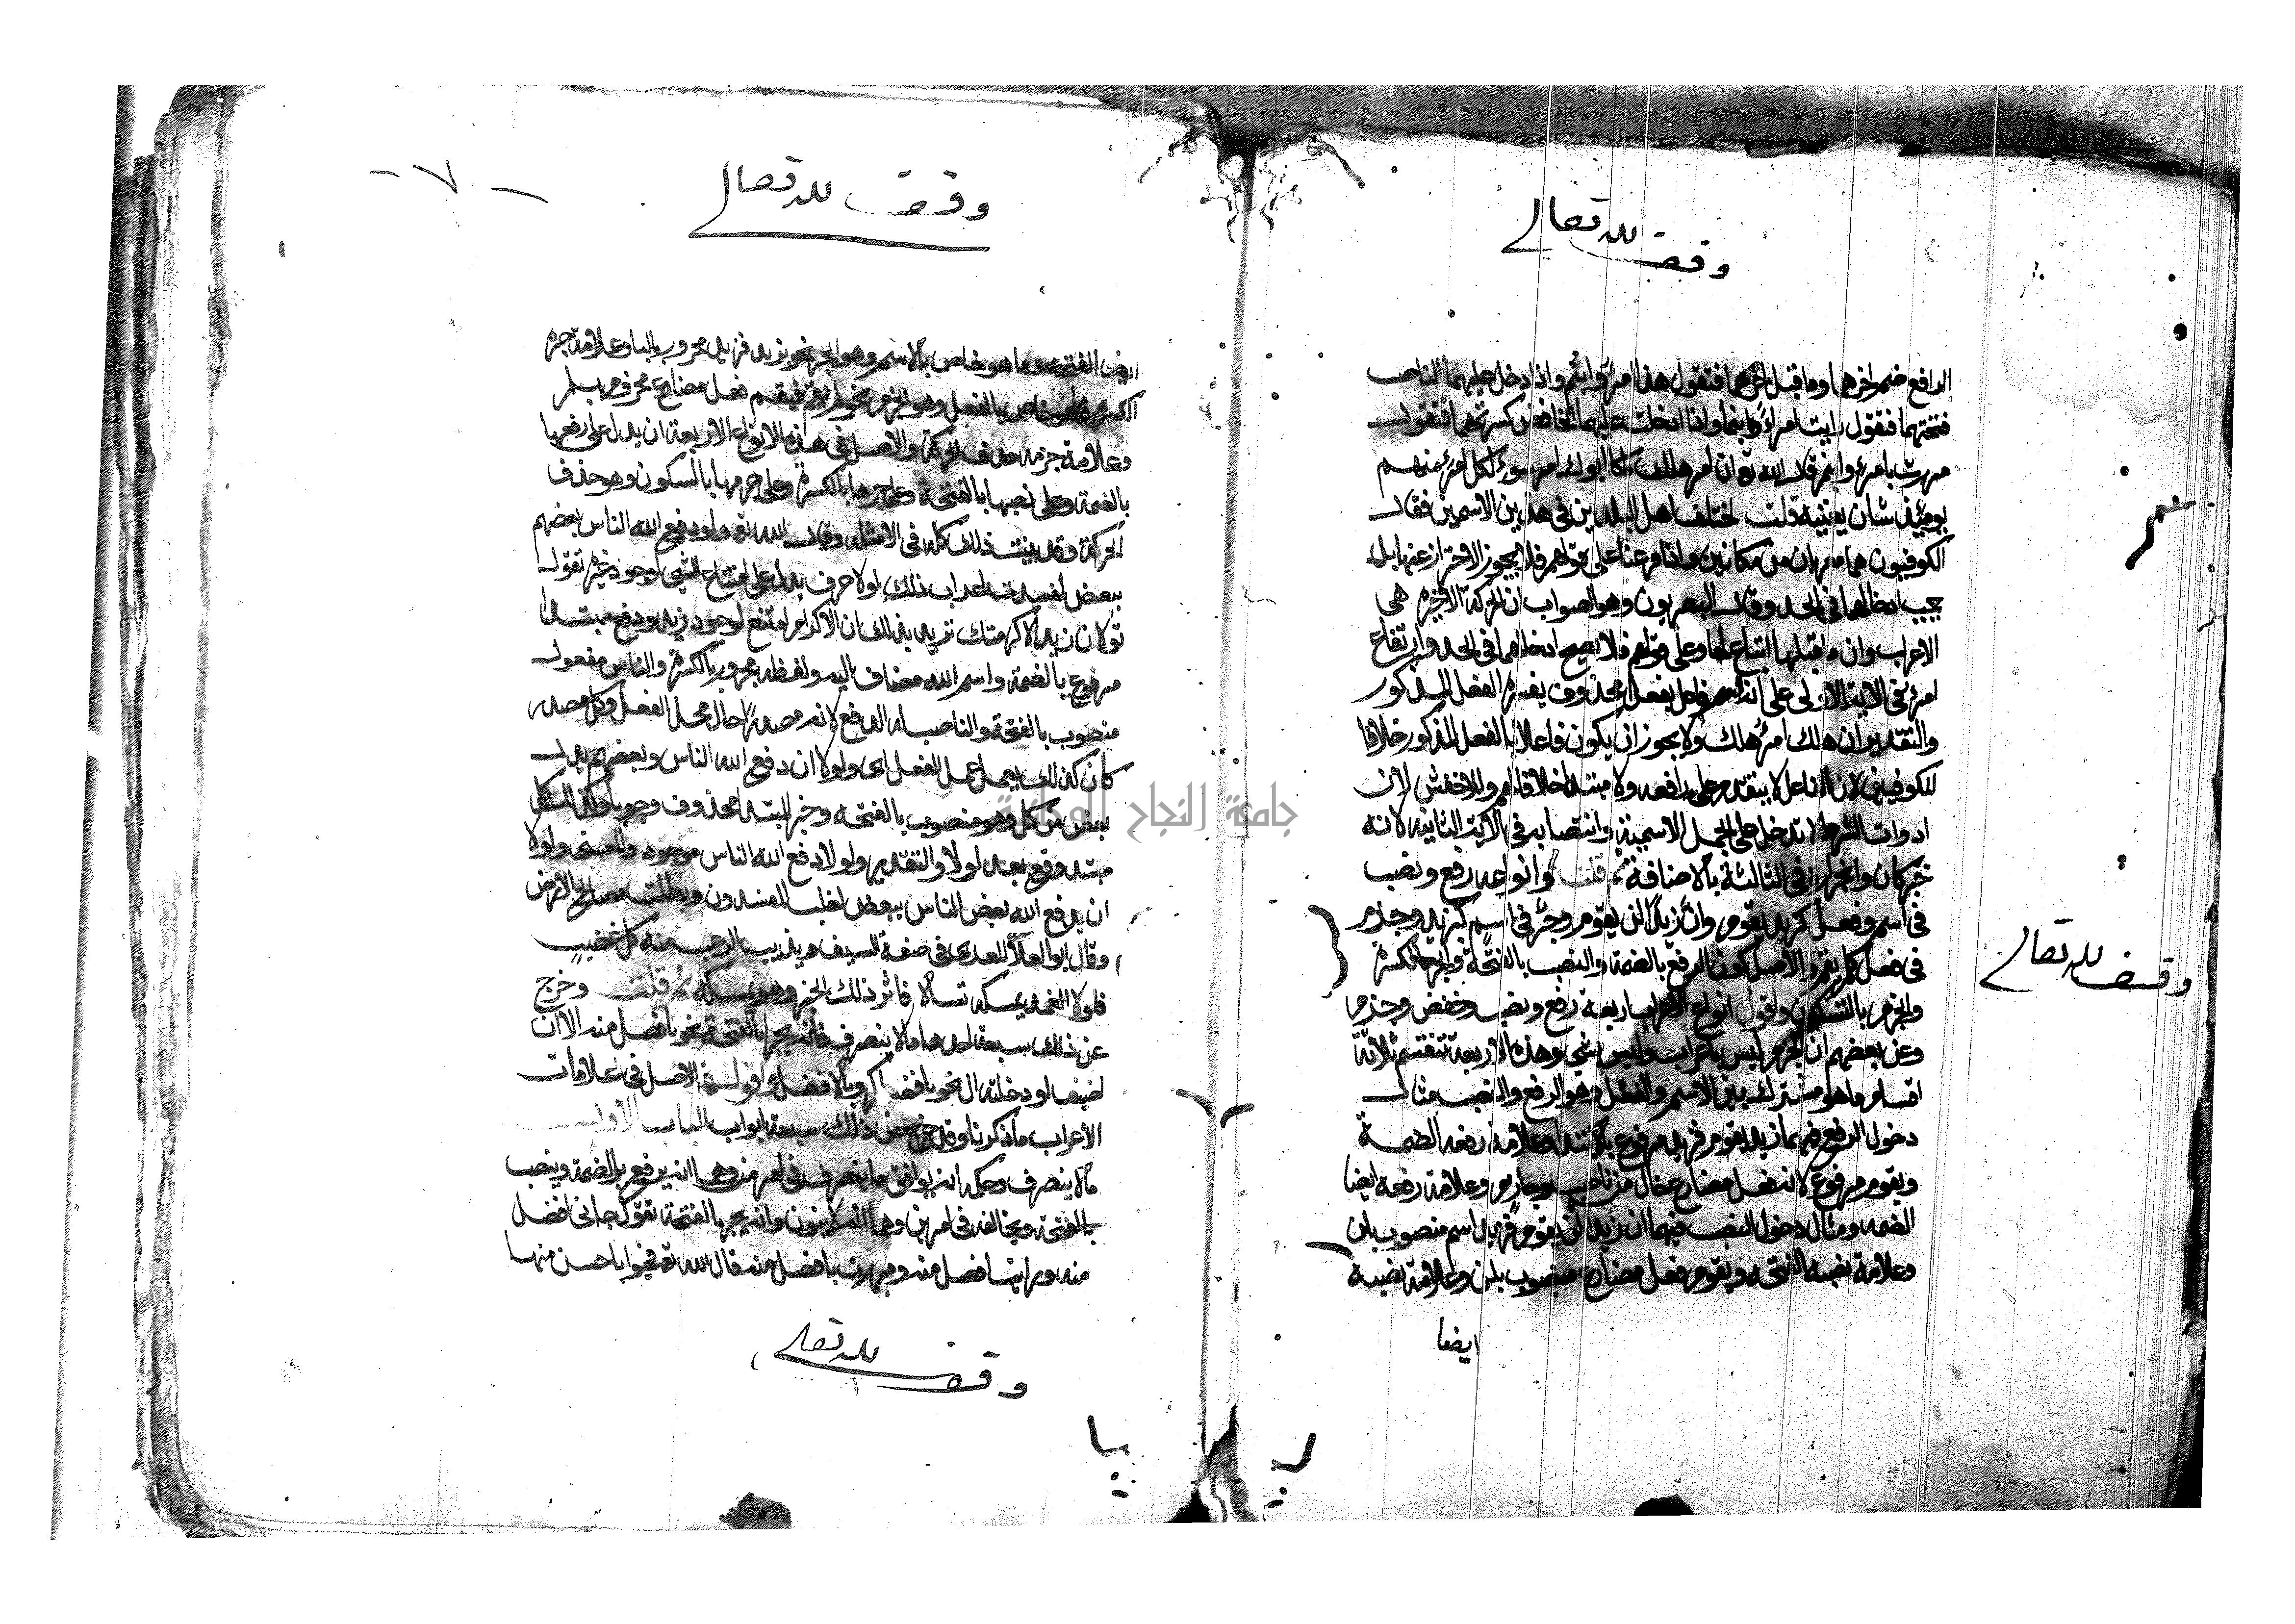 وقف لله تعالى
الرافع ضم اخرهما وما قبل اخرهما فتقول هذا امرؤ وابنم واذا دخل عليهما الناصب
فتحتهما فتقول رايت امرأ وابنما واذا ادخلت عليهما الخافض كسرتهما فتقول
مررت بامرئ وابنم قال الله تع ان امرؤ هلك ما كان ابوك امرء سوء لكل امرئ منهم
يومئذ شان يغنيه قلت اختلف اهل البلدين في هذين الاسمين فقال
الكوفيون هما معربان من مكانين واذا فرعنا على قولهم فلا يجوز الاحتراز عنهما بل
يجب ادخالهما في الحد وقال البصريون وهو الصواب ان الحركة الاخيرة هي
الاعراب وان ما قبلها اتباع لها وعلى قولهم فلا يصح ادخالهما في الحد وارتفاع
امرؤ في الاية الاولى على انه فاعل بفعل محذوف يفسره الفعل المذكور
والتقدير ان هلك امرؤ هلك ولا يجوز ان يكون فاعلا بالفعل المذكور خلافا
للكوفيين لان الفاعل لا يتقدم على رافعه ولا مبتدا خلافا لهم وللاخفش لان
ادوات الشرط لا تدخل على الجمل الاسمية وانتصابه في الاية الثانية لانه
خبر كان وانجراره في الثالثة بالاضافة ثم قلت وانواعه رفع ونصب
في اسم وفعل كزيد يقوم وان زيدا لن يقوم وجر في اسم كبزيد وجزم
في فعل كلم يقم والاصل كون الرفع بالضمة والنصب بالفتحة والجر بالكسرة
والجزم بالسكون واقول انواع الاعراب اربعة رفع ونصب وخفض وجزم
وعن بعضهم ان الجزم ليس باعراب وليس بشي وهذه الاربعة تنقسم ثلاثة
اقسام ما هو مشترك بين الاسم والفعل وهو الرفع والنصب مثال
دخول الرفع فيهما زيد يقوم فزيد مرفوع بالابتدا وعلامة رفعه الضمة
ويقوم مرفوع لانه فعل مضارع خال من ناصب وجازم وعلامة رفعه ايضا
الضمه ومثال دخول النصب فيهما ان زيدا لن يقوم فزيدا اسم منصوب بان
وعلامة نصبه الفتحه ويقوم فعل مضارع منصوب بلن وعلامة نصبه
ايضا
وقف لله تعالى
وقف لله تعالى
- ٧ -
ايضا الفتحه وما هو خاص بالاسم وهو الجر نحو بزيد فزيد مجرور بالبا وعلامة جره
الكسره وما هو خاص بالفعل وهو الجزم نحو لم يقم فيقم فعل مضارع مجزوم بلم
وعلامة جزمه حذف الحركة والاصل في هذه الانواع الاربعة ان يدل على رفعها
بالضمة وعلى نصبها بالفتحة وعلى جرها بالكسرة وعلى جزمها بالسكون وهو حذف
الحركة وقد بينت ذلك كله في الامثله وقال الله تع ولولا دفع الله الناس بعضهم
ببعض لفسدت اعراب ذلك لولا حرف يدل على امتناع الشي لوجود غيره تقول
لولا زيد لاكرمتك تريد بذلك ان الاكرام امتنع لوجود زيد ودفع مبتدا
مرفوع بالضمة واسم الله مضاف اليه ولفظه مجرور بالكسرة والناس مفعول
منصوب بالفتحة والناصب له الدفع لانه مصدر حال محل الفعل وكل مصدر
كان كذلك يعمل عمل الفعل اى ولولا ان دفع الله الناس وبعضهم بدل
بعض من كل وهو منصوب بالفتحه وخبر المبتدا محذوف وجوبا وكذلك كل
مبتدا وقع بعد لولا والتقدير ولولا دفع الله الناس موجود والمعنى ولولا
ان يدفع الله بعض الناس ببعض لغلب المفسدون وبطلت مصالح الارض
وقال ابو العلا المعرى في صفة السيف يذيب الرعب منه كل عضب
فلولا الغمد يمسكه لسالا فاثر ذلك الخبر وهو يمسكه ثم قلت وخرج
عن ذلك سبعة احدها ما لا ينصرف فانه يجر بالفتحة نحو بافضل منه الا ان
اضيف او دخلته ال نحو بافضلكم وبالافضل واقول الاصل في علامات
الاعراب ما ذكرنا وقد خرج عن ذلك سبعة ابواب الباب الاول
ما لا ينصرف وحكمه انه يوافق ما ينصرف في امرين وهما انه يرفع بالضمة وينصب
بالفتحة ويخالفه في امرين وهما انه لا ينون وانه يجر بالفتحة تقول جانى افضل
منه ورايت افضل منه ومررت بافضل منه قال الله تع فحيوا باحسن منها
وقف لله تعالى
جامعة النجاح الوطنية